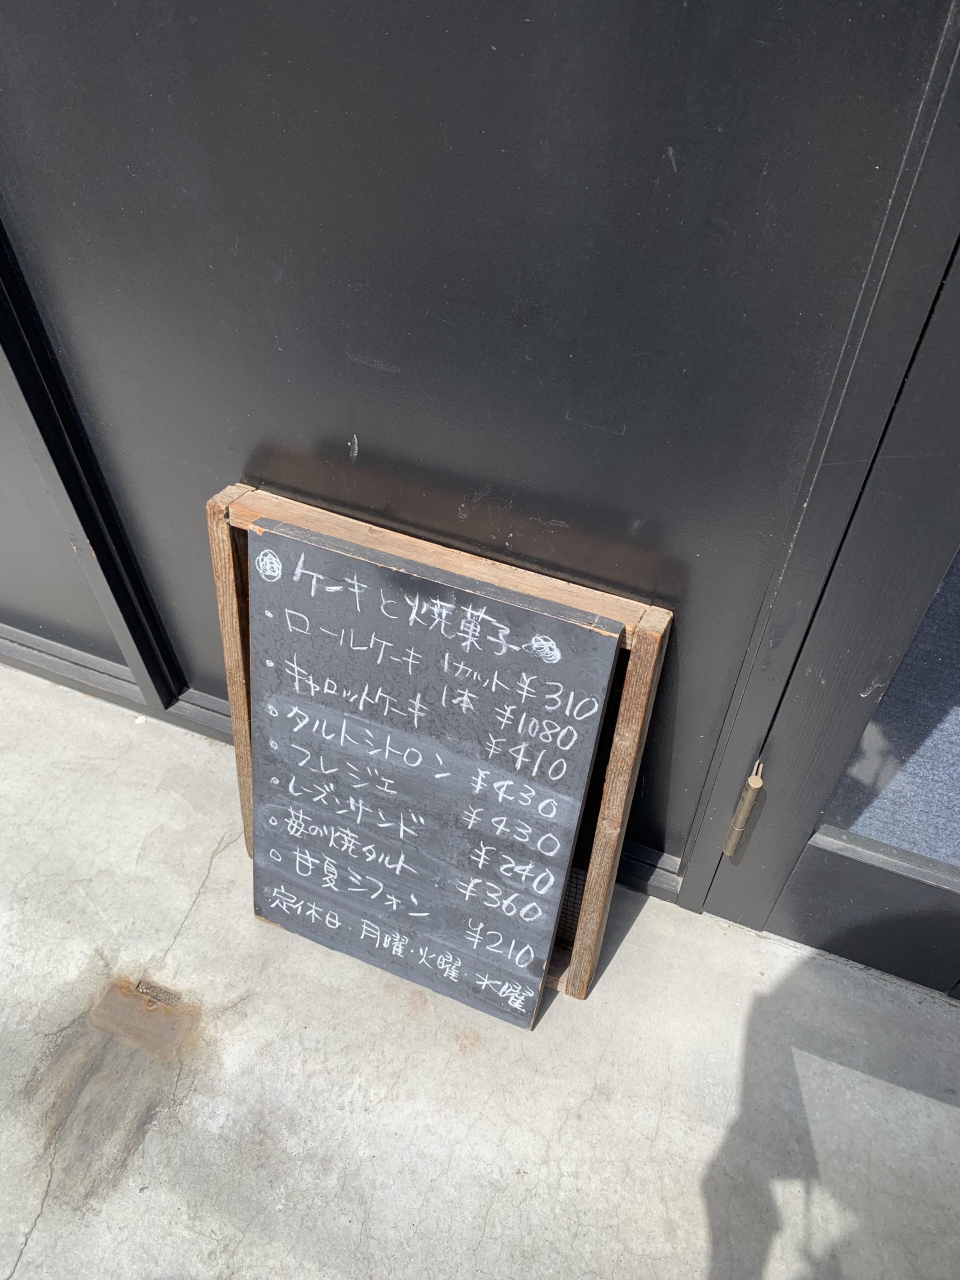 ケーキと焼菓子
・ロールケーキ 1カット ¥310
1本 ¥1080
・キャロットケーキ ¥410
・タルトシトロン ¥430
・フレジェ ¥430
・レーズンサンド ¥240
・苺の焼タルト ¥360
・甘夏シフォン ¥210
定休日・月曜・火曜・水曜